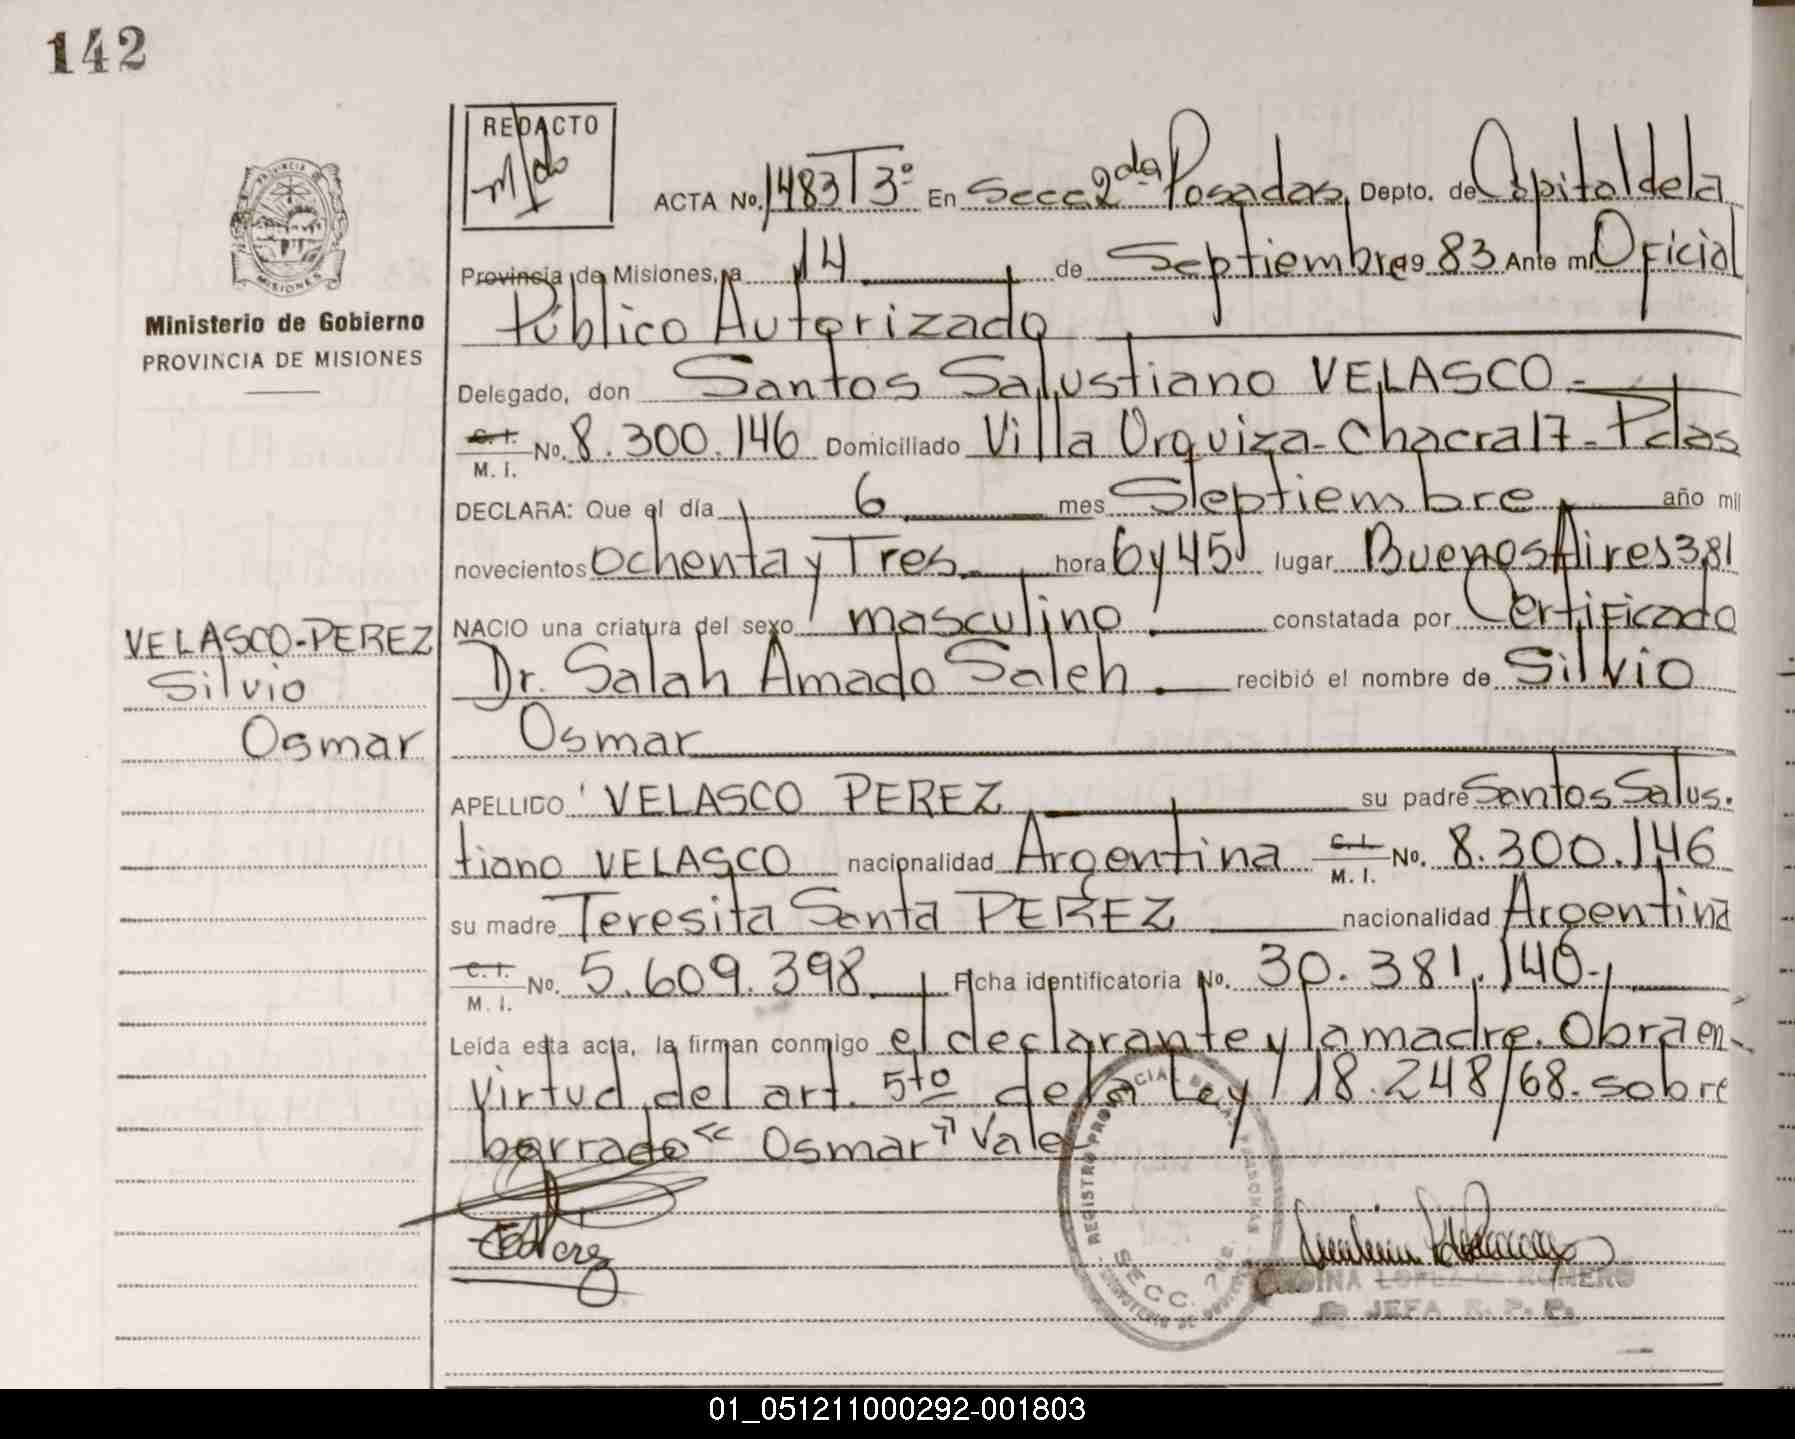 142
REDACTO
ACTA No. 1483 T 3º En Secc. 2da Posadas, Depto. de Capital de la
Provincia de Misiones, a 14 de Septiembre 19 83 Ante mi Oficial
Público Autorizado
Ministerio de Gobierno
PROVINCIA DE MISIONES
Delegado, don Santos Salustiano VELASCO.-
C. I. M. I. No. 8.300.146 Domiciliado Villa Urquiza - Chacra 17 - Pdas
DECLARA: Que el día 6 mes Septiembre año mil
novecientos ochenta y Tres hora 6 y 45 lugar Buenos Aires 381
NACIO una criatura del sexo masculino constatada por Certificado
Dr. Salah Amado Saleh. recibió el nombre de Silvio
Osmar
VELASCO-PEREZ
Silvio
Osmar
APELLIDO VELASCO PEREZ su padre Santos Salus-
tiano VELASCO nacionalidad Argentina C. I. M. I. No. 8.300.146
su madre Teresita Santa PEREZ nacionalidad Argentina
C. I. M. I. No. 5.609.398 Ficha identificatoria No. 30.381.140.-
Leída esta acta, la firman conmigo el declarante y la madre. Obra en
virtud del art. 5to de la Ley 18.248/68. sobre
borrado "Osmar" Vale
REGISTRO PROVINCIAL DE LAS PERSONAS
SECC. 2
LOPEZ de ROMERO
JEFA R. P. P.
01_051211000292-001803